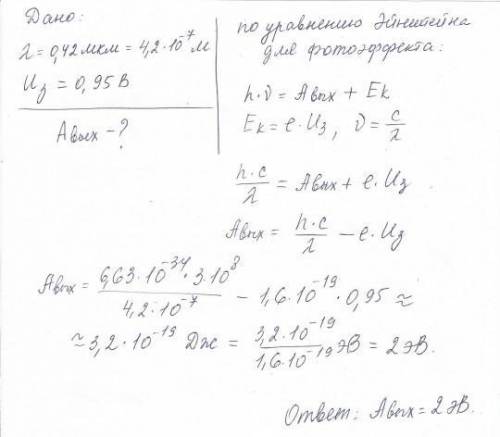 Дано:
λ = 0,42 мкм = 4,2·10⁻⁷ м
Uз = 0,95 В
Авых - ?
по уравнению Эйнштейна
для фотоэффекта:
h·ν = Авых + Eк
Eк = e·Uз, ν = c/λ
h·c/λ = Авых + e·Uз
Авых = h·c/λ - e·Uз
Авых = 6,63·10⁻³⁴·3·10⁸/4,2·10⁻⁷ - 1,6·10⁻¹⁹·0,95 ≈
≈ 3,2·10⁻¹⁹ Дж = 3,2·10⁻¹⁹/1,6·10⁻¹⁹ эВ = 2 эВ.
Ответ: Авых = 2 эВ.